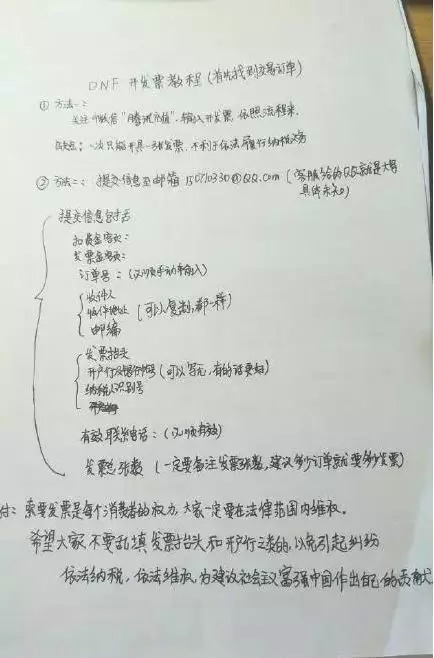 DNF 开发票教程(首先找到交易订单)
① 方法一:
关注微信"腾讯充值",输入开发票,依照流程来,
缺点:一次只能开具一张发票,不利于依法履行纳税义务
② 方法二:提交信息至邮箱 @QQ.com (客服给的QQ就是大号
具体未知)
提交信息包括
扣费金额:
发票金额:
订单号:(必须手动输入)
收件人
收件地址 (可以复制,都一样)
邮编
发票抬头
开户行及银行帐号(可以写无,有的话要好)
纳税人识别号
有效联系电话:(必须有效)
发票总张数 (一定要备注发票张数,建议多少订单就要多少发票)
付:索要发票是每个消费者的权力,大家一定要在法律范围内维权。
希望大家不要乱填发票抬头和开户行之类的,以免引起纠纷
依法纳税,依法维权,为建设社会主义富强中国作出自己的贡献